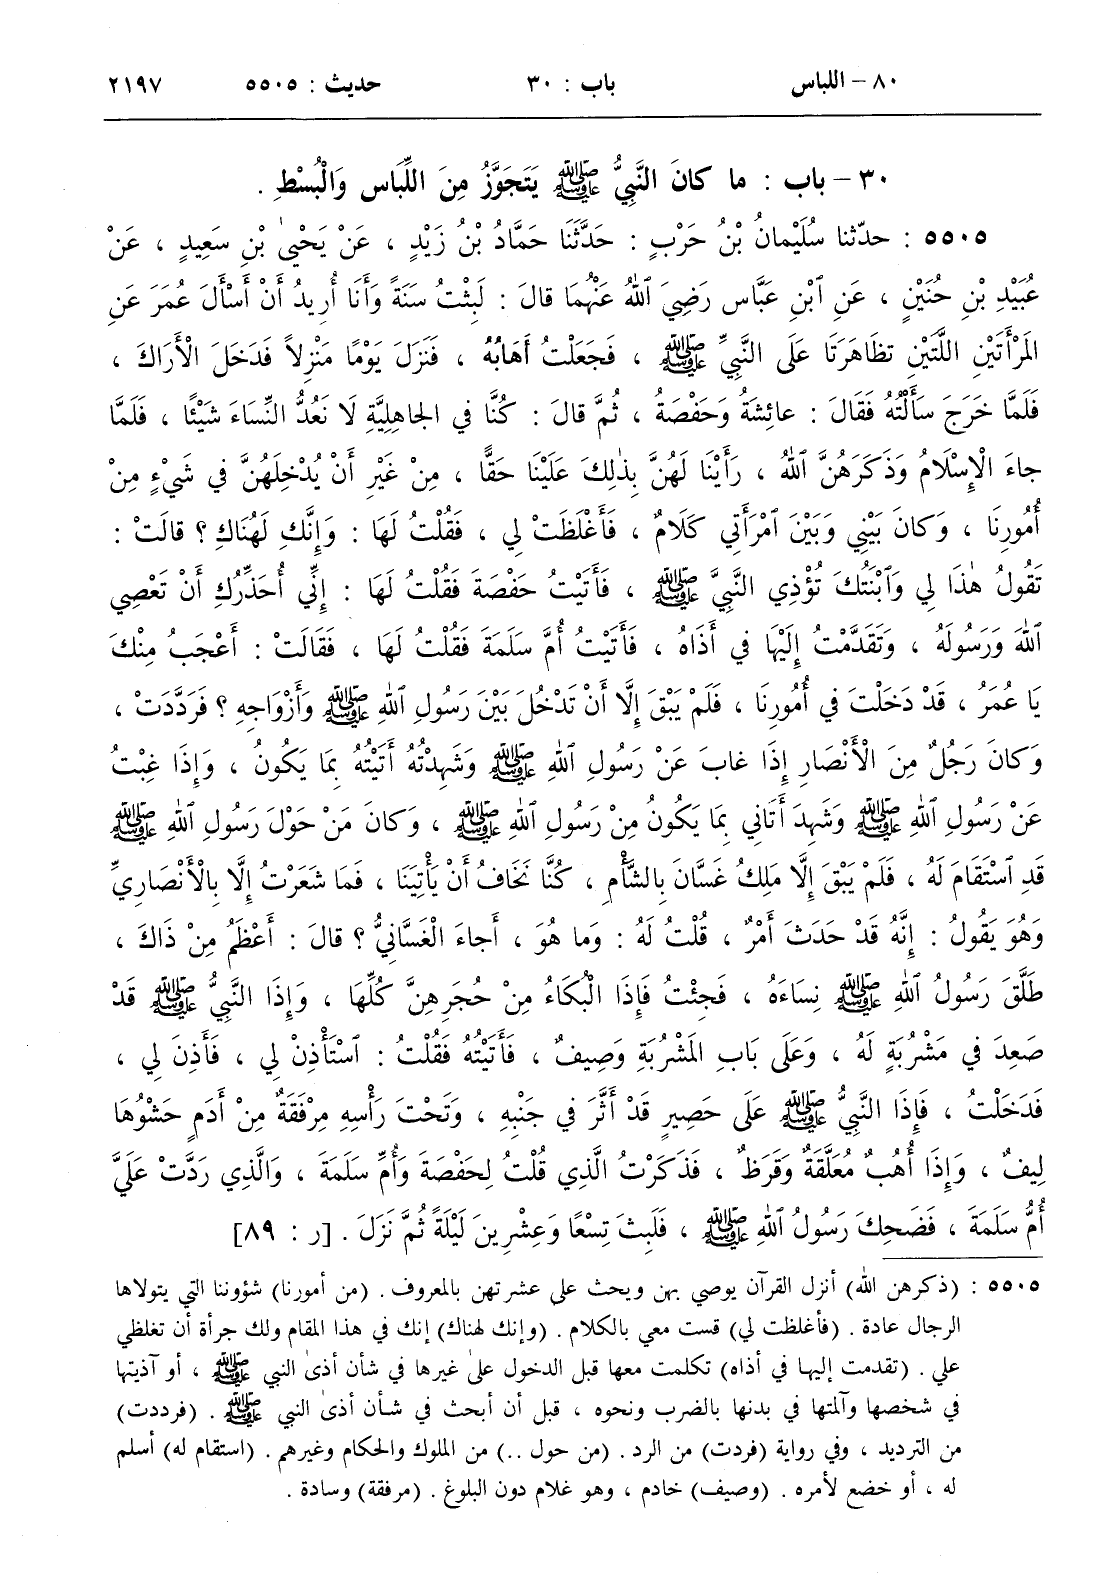 ٨٠ – اللباس باب : ٣٠ حديث : ٥٥٠٥ ٢١٩٧
٣٠ – باب : ما كانَ النَّبِيُّ ﷺ يَتَجَوَّزُ مِنَ اللِّبَاسِ وَالْبُسْطِ .
٥٥٠٥ : حدّثنا سُلَيْمانُ بْنُ حَرْبٍ : حَدَّثَنَا حَمَّادُ بْنُ زَيْدٍ ، عَنْ يَحْيىٰ بْنِ سَعِيدٍ ، عَنْ
عُبَيْدِ بْنِ حُنَيْنٍ ، عَنِ ٱبْنِ عَبَّاسٍ رَضِيَ ٱللهُ عَنْهُمَا قالَ : لَبِثْتُ سَنَةً وَأَنَا أُرِيدُ أَنْ أَسْأَلَ عُمَرَ عَنِ
المَرْأَتَيْنِ اللَّتَيْنِ تظَاهَرَتَا عَلَى النَّبِيِّ ﷺ ، فَجَعَلْتُ أَهَابُهُ ، فَنَزَلَ يَوْمًا مَنْزِلاً فَدَخَلَ الْأَرَاكَ ،
فَلَمَّا خَرَجَ سَأَلْتُهُ فَقَالَ : عائِشَةُ وَحَفْصَةُ ، ثُمَّ قالَ : كُنَّا في الجَاهِلِيَّةِ لَا نَعُدُّ النِّسَاءَ شَيْئًا ، فَلَمَّا
جاءَ الْإِسْلَامُ وَذَكَرَهُنَّ ٱللهُ ، رَأَيْنَا لَهُنَّ بِذٰلِكَ عَلَيْنَا حَقًّا ، مِنْ غَيْرِ أَنْ يُدْخِلَهُنَّ في شَيْءٍ مِنْ
أُمُورِنَا ، وَكانَ بَيْنِي وَبَيْنَ ٱمْرَأَتِي كَلَامٌ ، فَأَغْلَظَتْ لِي ، فَقُلْتُ لَهَا : وَإِنَّكِ لَهُنَاكِ ؟ قالَتْ :
تَقُولُ هٰذَا لِي وَٱبْنَتُكَ تُؤْذِي النَّبِيَّ ﷺ ، فَأَتَيْتُ حَفْصَةَ فَقُلْتُ لَهَا : إِنِّي أُحَذِّرُكِ أَنْ تَعْصِي
ٱللهَ وَرَسُولَهُ ، وَتَقَدَّمْتُ إِلَيْهَا في أَذَاهُ ، فَأَتَيْتُ أُمَّ سَلَمَةَ فَقُلْتُ لَهَا ، فَقَالَتْ : أَعْجَبُ مِنْكَ
يَا عُمَرُ ، قَدْ دَخَلْتَ في أُمُورِنَا ، فَلَمْ يَبْقَ إِلَّا أَنْ تَدْخُلَ بَيْنَ رَسُولِ ٱللهِ ﷺ وَأَزْوَاجِهِ ؟ فَرَدَّدَتْ ،
وَكانَ رَجُلٌ مِنَ الْأَنْصَارِ إِذَا غابَ عَنْ رَسُولِ ٱللهِ ﷺ وَشَهِدْتُهُ أَتَيْتُهُ بِمَا يَكُونُ ، وَإِذَا غِبْتُ
عَنْ رَسُولِ ٱللهِ ﷺ وَشَهِدَ أَتَانِي بِمَا يَكُونُ مِنْ رَسُولِ ٱللهِ ﷺ ، وَكانَ مَنْ حَوْلَ رَسُولِ ٱللهِ ﷺ
قَدِ ٱسْتَقَامَ لَهُ ، فَلَمْ يَبْقَ إِلَّا مَلِكُ غَسَّانَ بِالشَّأْمِ ، كُنَّا نَخَافُ أَنْ يَأْتِيَنَا ، فَمَا شَعَرْتُ إِلَّا بِالْأَنْصَارِيِّ
وَهُوَ يَقُولُ : إِنَّهُ قَدْ حَدَثَ أَمْرٌ ، قُلْتُ لَهُ : وَما هُوَ ، أَجاءَ الْغَسَّانِيُّ ؟ قالَ : أَعْظَمُ مِنْ ذَاكَ ،
طَلَّقَ رَسُولُ ٱللهِ ﷺ نِسَاءَهُ ، فَجِئْتُ فَإِذَا الْبُكَاءُ مِنْ حُجَرِهِنَّ كُلِّهَا ، وَإِذَا النَّبِيُّ ﷺ قَدْ
صَعِدَ في مَشْرُبَةٍ لَهُ ، وَعَلَى بَابِ المَشْرُبَةِ وَصِيفٌ ، فَأَتَيْتُهُ فَقُلْتُ : ٱسْتَأْذِنْ لِي ، فَأَذِنَ لِي ،
فَدَخَلْتُ ، فَإِذَا النَّبِيُّ ﷺ عَلَى حَصِيرٍ قَدْ أَثَّرَ في جَنْبِهِ ، وَتَحْتَ رَأْسِهِ مِرْفَقَةٌ مِنْ أَدَمٍ حَشْوُهَا
لِيفٌ ، وَإِذَا أُهُبٌ مُعَلَّقَةٌ وَقَرَظٌ ، فَذَكَرْتُ الَّذِي قُلْتُ لِحَفْصَةَ وَأُمِّ سَلَمَةَ ، وَالَّذِي رَدَّتْ عَلَيَّ
أُمُّ سَلَمَةَ ، فَضَحِكَ رَسُولُ ٱللهِ ﷺ ، فَلَبِثَ تِسْعًا وَعِشْرِينَ لَيْلَةً ثُمَّ نَزَلَ . [ر : ٨٩]
٥٥٠٥ : (ذكرهن الله) أنزل القرآن يوصي بهن ويحث على عشرتهن بالمعروف . (من أمورنا) شؤوننا التي يتولاها
الرجال عادة . (فأغلظت لي) قست معي بالكلام . (وإنك لهناك) إنك في هذا المقام ولك جرأة أن تغلظي
علي . (تقدمت إليها في أذاه) تكلمت معها قبل الدخول على غيرها في شأن أذى النبي ﷺ ، أو آذيتها
في شخصها وآلمتها في بدنها بالضرب ونحوه ، قبل أن أبحث في شأن أذى النبي ﷺ . (فرددت)
من الترديد ، وفي رواية (فردت) من الرد . (من حول ..) من الملوك والحكام وغيرهم . (استقام له) أسلم
له ، أو خضع لأمره . (وصيف) خادم ، وهو غلام دون البلوغ . (مرفقة) وسادة .